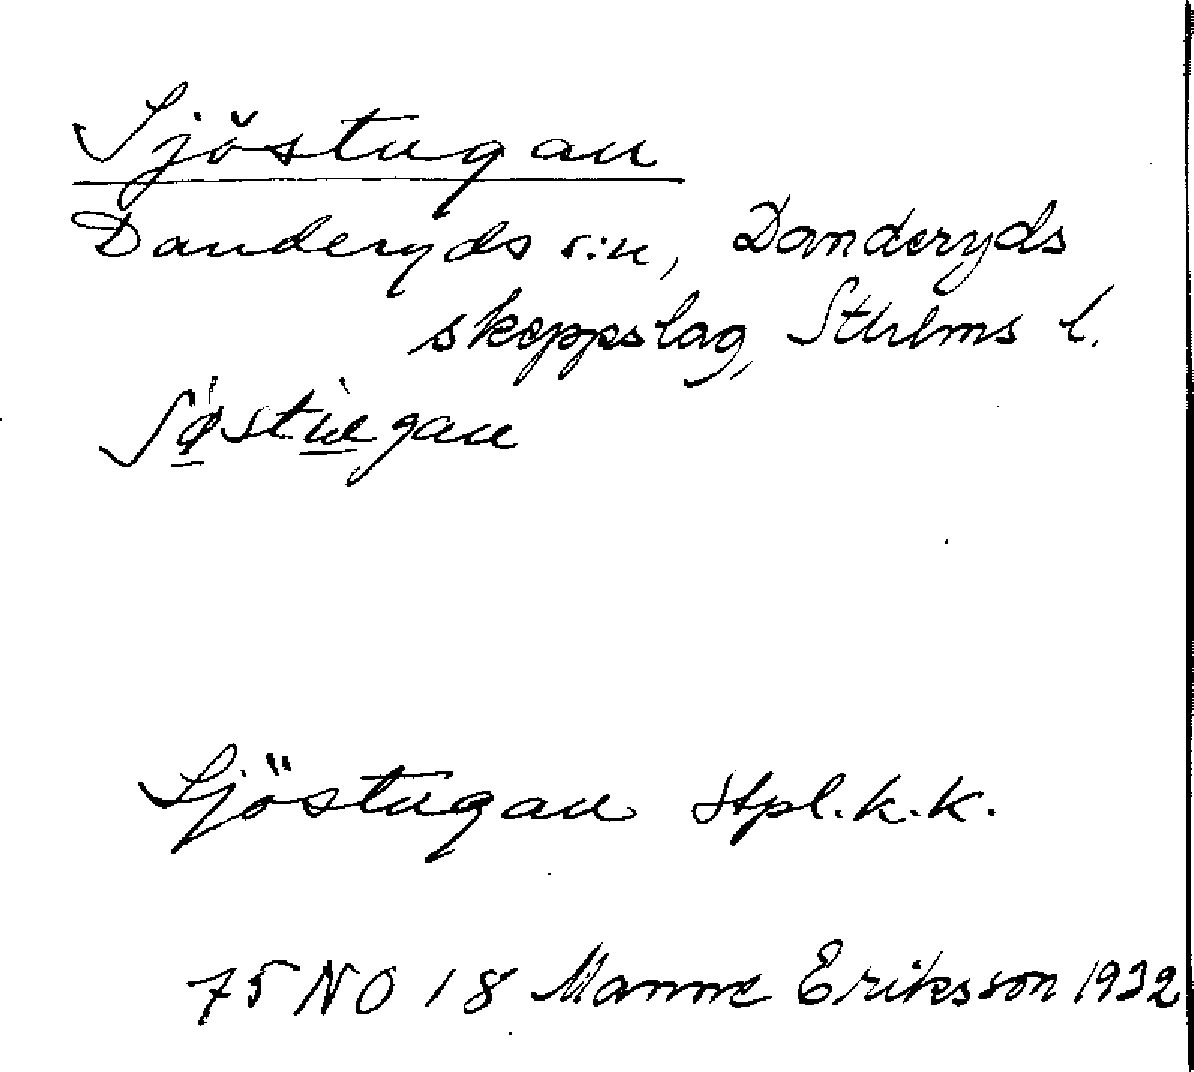 Sjöstugan
Danderyds s:n, Danderyds
skeppslag, Sthlms l.
Sjöstugan Stpl. k.k.
75 NO 18 Manne Eriksson 1932